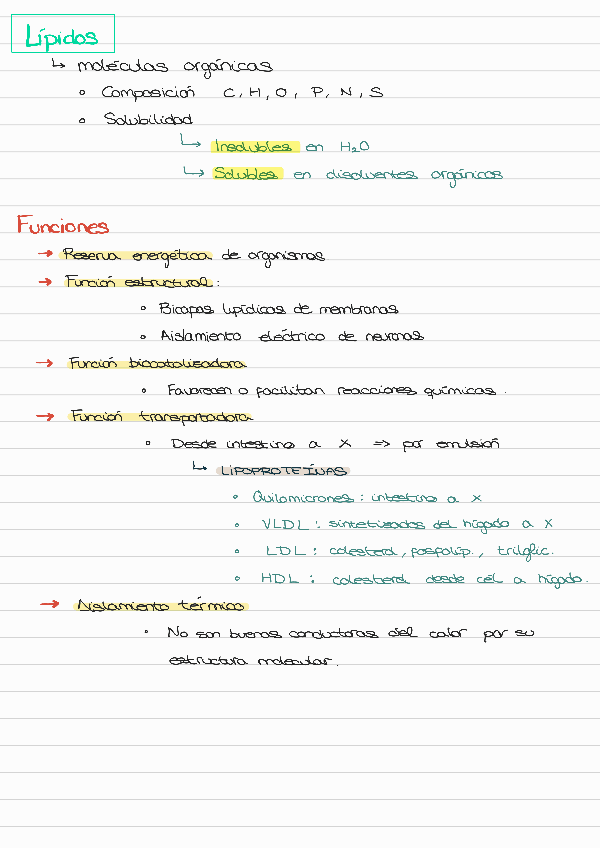 Lípidos
↳ moléculas orgánicas
◦ Composición C, H, O, P, N, S
◦ Solubilidad
↳ Insolubles en H₂O
↳ Solubles en disolventes orgánicos
Funciones
→ Reserva energética de organismos
→ Función estructural:
◦ Bicapas lipídicas de membranas
◦ Aislamiento eléctrico de neuronas
→ Función biocatalizadora
◦ Favorecen o facilitan reacciones químicas.
→ Función transportadora
◦ Desde intestino a X => por emulsión
↳ LIPOPROTEÍNAS
◦ Quilomicrones: intestino a X
◦ VLDL: sintetizados del hígado a X
◦ LDL: colesterol, fosfolip., triglic.
◦ HDL: colesterol desde cél a hígado.
→ Aislamiento térmico
◦ No son buenos conductoras del calor por su
estructura molecular.